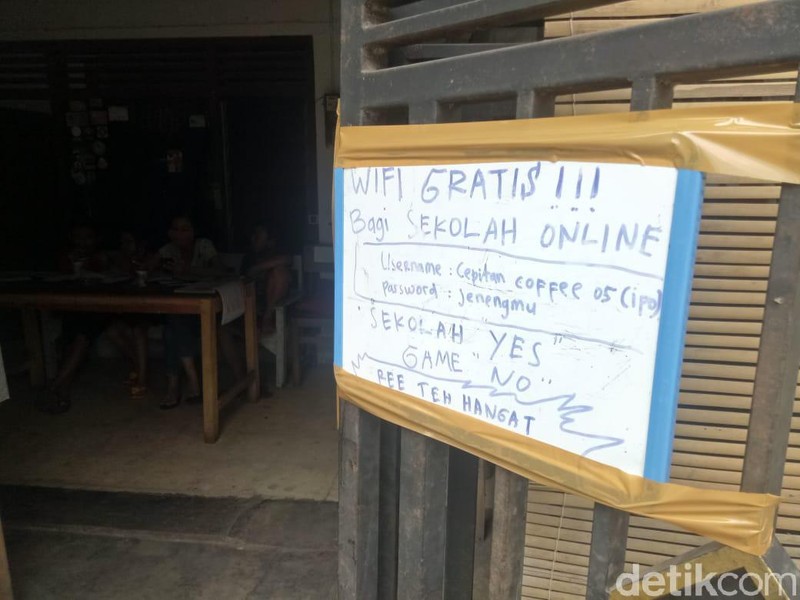 WIFI GRATIS!!!
Bagi SEKOLAH ONLINE
Username : Cepitan coffee 05 (ipo)
Password : jenengmu
"SEKOLAH "YES"
GAME "NO"
REE TEH HANGAT
detikcom